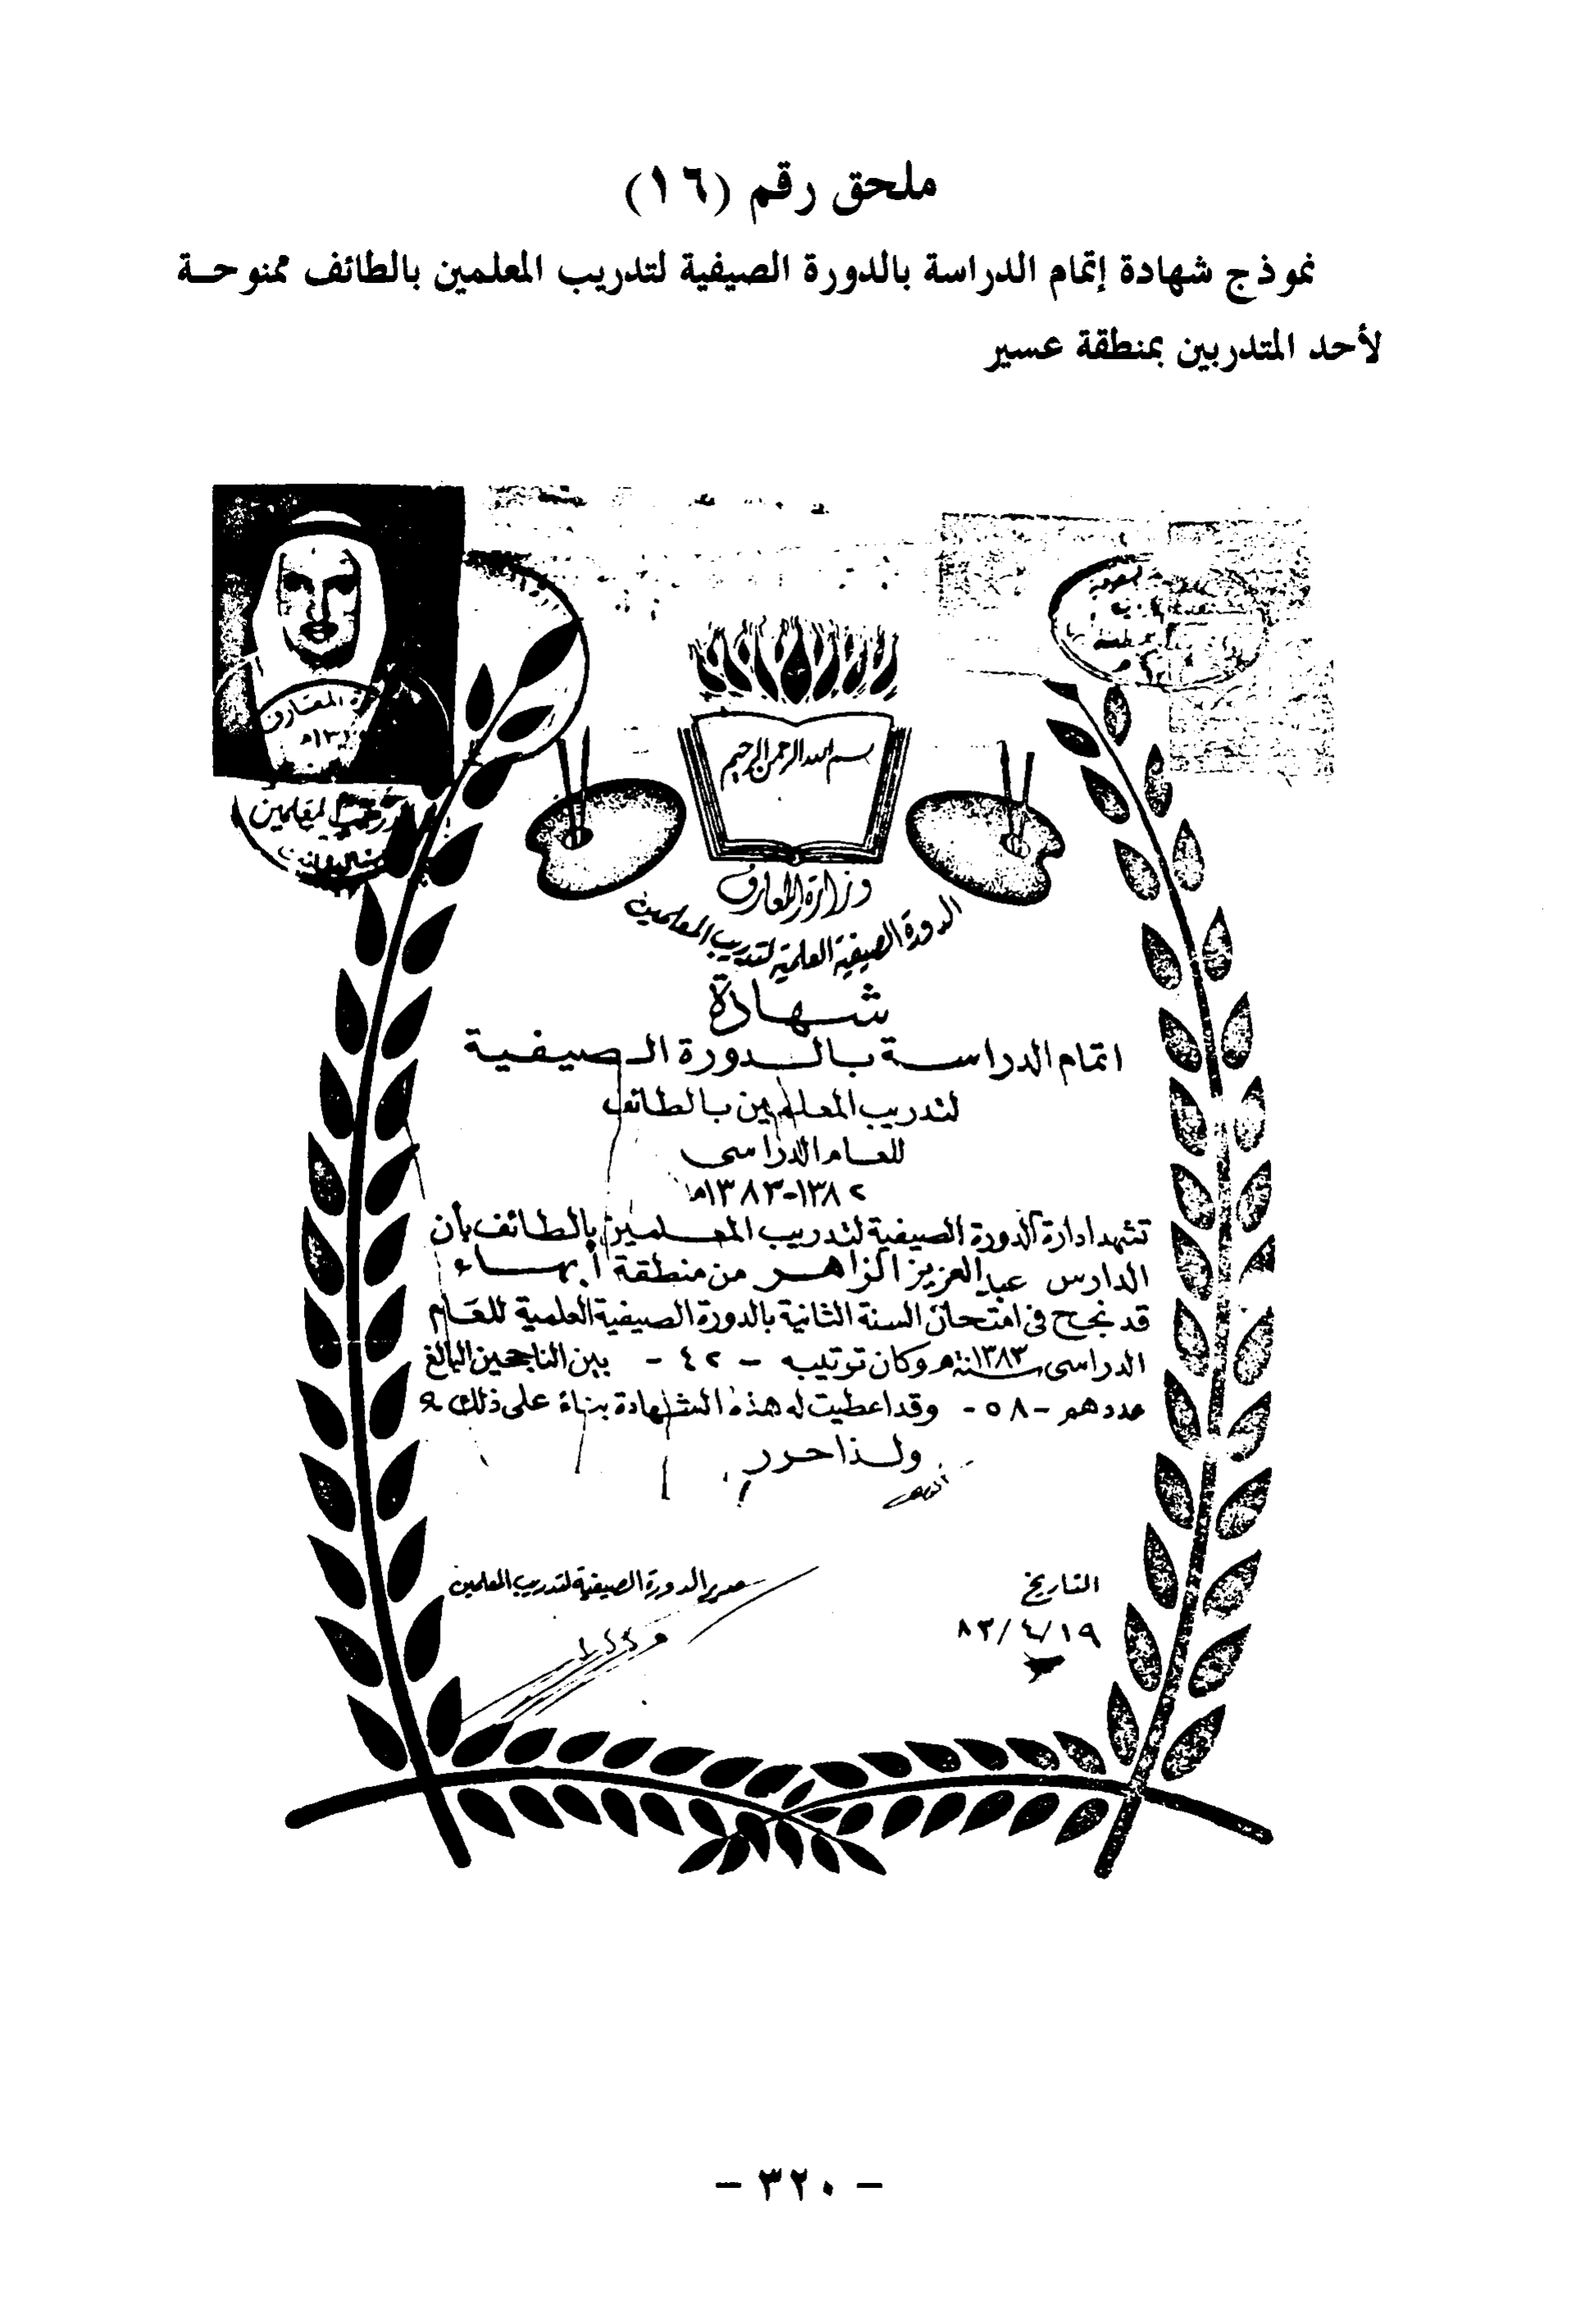 ملحق رقم (١٦)
نموذج شهادة إتمام الدراسة بالدورة الصيفية لتدريب المعلمين بالطائف ممنوحة
لأحد المتدربين بمنطقة عسير
المعارف
لمعلمين
بسم الله الرحمن الرحيم
وزارة المعارف
الدورة الصيفية العلمية لتدريب المعلمين
شهادة
اتمام الدراسة بالدورة الصيفية
لتدريب المعلمين بالطائف
للعام الدراسى
١٣٨٢-١٣٨٣هـ
تشهد ادارة الدورة الصيفية لتدريب المعلمين بالطائف بأن
الدارس عبدالعزيز الزاهر من منطقة أبهاء
قد نجح فى امتحان السنة الثانية بالدورة الصيفية العلمية للعام
الدراسى سنة ١٣٨٣هـ وكان ترتيبه - ٤٢ - بين الناجحين البالغ
عددهم - ٥٨ - وقد اعطيت له هذه الشهادة بناء على ذلك
ولذا حرر
مدير الدورة الصيفية لتدريب المعلمين
التاريخ
١٩/٤/٨٣
- ٣٢٠ -